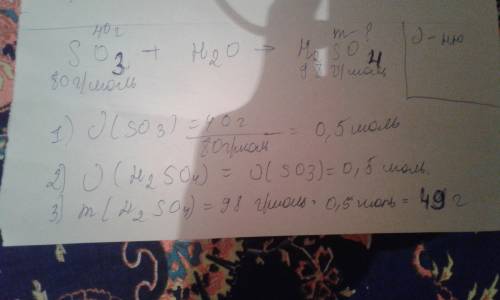 40 г m - ?
SO3 + H2O → H2SO4 | ν - ню
80 г/моль 98 г/моль
1) ν (SO3) = 40 г / 80 г/моль = 0,5 моль
2) ν (H2SO4) = ν (SO3) = 0,5 моль.
3) m (H2SO4) = 98 г/моль · 0,5 моль = 49 г